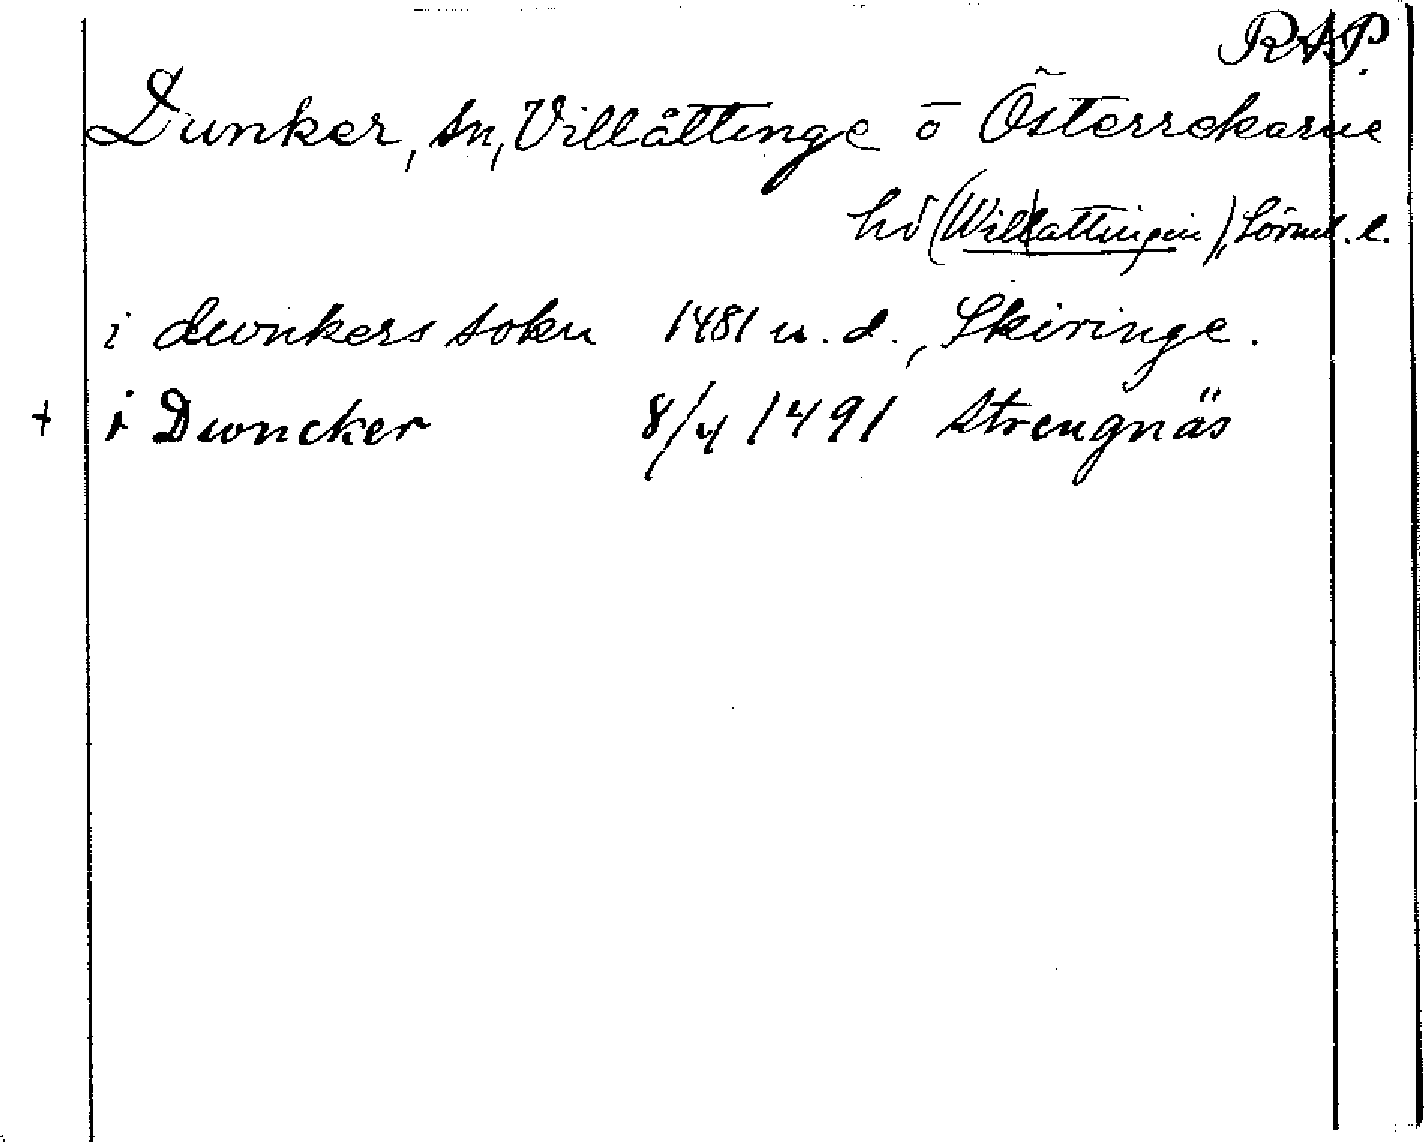 RAP.
Dunker, sn, Villåttinge o Österrekarne
hd (Willattingin), Sörml. l.
i dwnkers sokn 1481 u. d., Skiringe.
+ i Dwncker 8/4 1491 Strengnäs